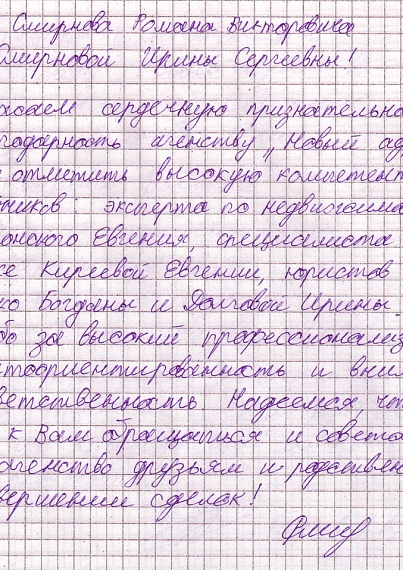 Смирнова Романа Викторовича
Смирновой Ирины Сергеевны!
жаем сердечную признательно
годарность агенству „Новый ад
отметить высокую компетент
ников: эксперта по недвижимо
онского Евгения, специалиста
ке Киреевой Евгении, юристов
ко Богданы и Долговой Ирины.
бо за высокий профессионализ
тоориентированность и вним
ветственность. Надеемся, что
к Вам обращаться и совето
агенство друзьям и родствен
вершении сделок!